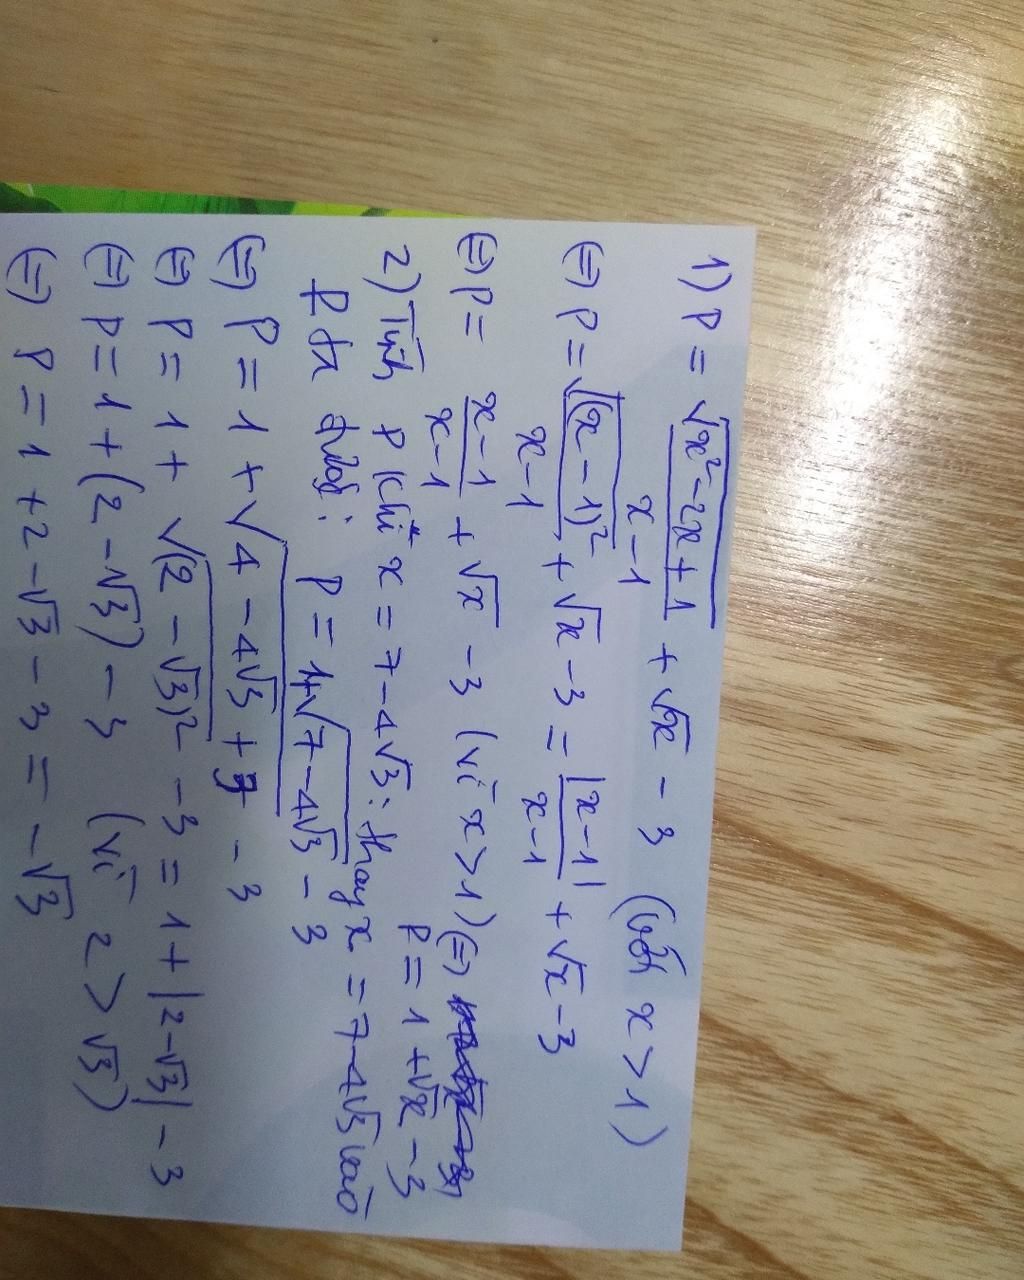 1) P = √(x² - 2x + 1) / (x - 1) + √x - 3 (với x > 1)
(=) P = √((x - 1)²) / (x - 1) + √x - 3 = |x - 1| / (x - 1) + √x - 3
(=) P = (x - 1) / (x - 1) + √x - 3 (vì x > 1) (=)
P = 1 + √x - 3
2) Tính P khi x = 7 - 4√3: thay x = 7 - 4√3 vào
P ta được: P = 1 + √(7 - 4√3) - 3
(=) P = 1 + √(4 - 4√3 + 3) - 3
(=) P = 1 + √((2 - √3)²) - 3 = 1 + |2 - √3| - 3
(=) P = 1 + (2 - √3) - 3 (vì 2 > √3)
(=) P = 1 + 2 - √3 - 3 = - √3